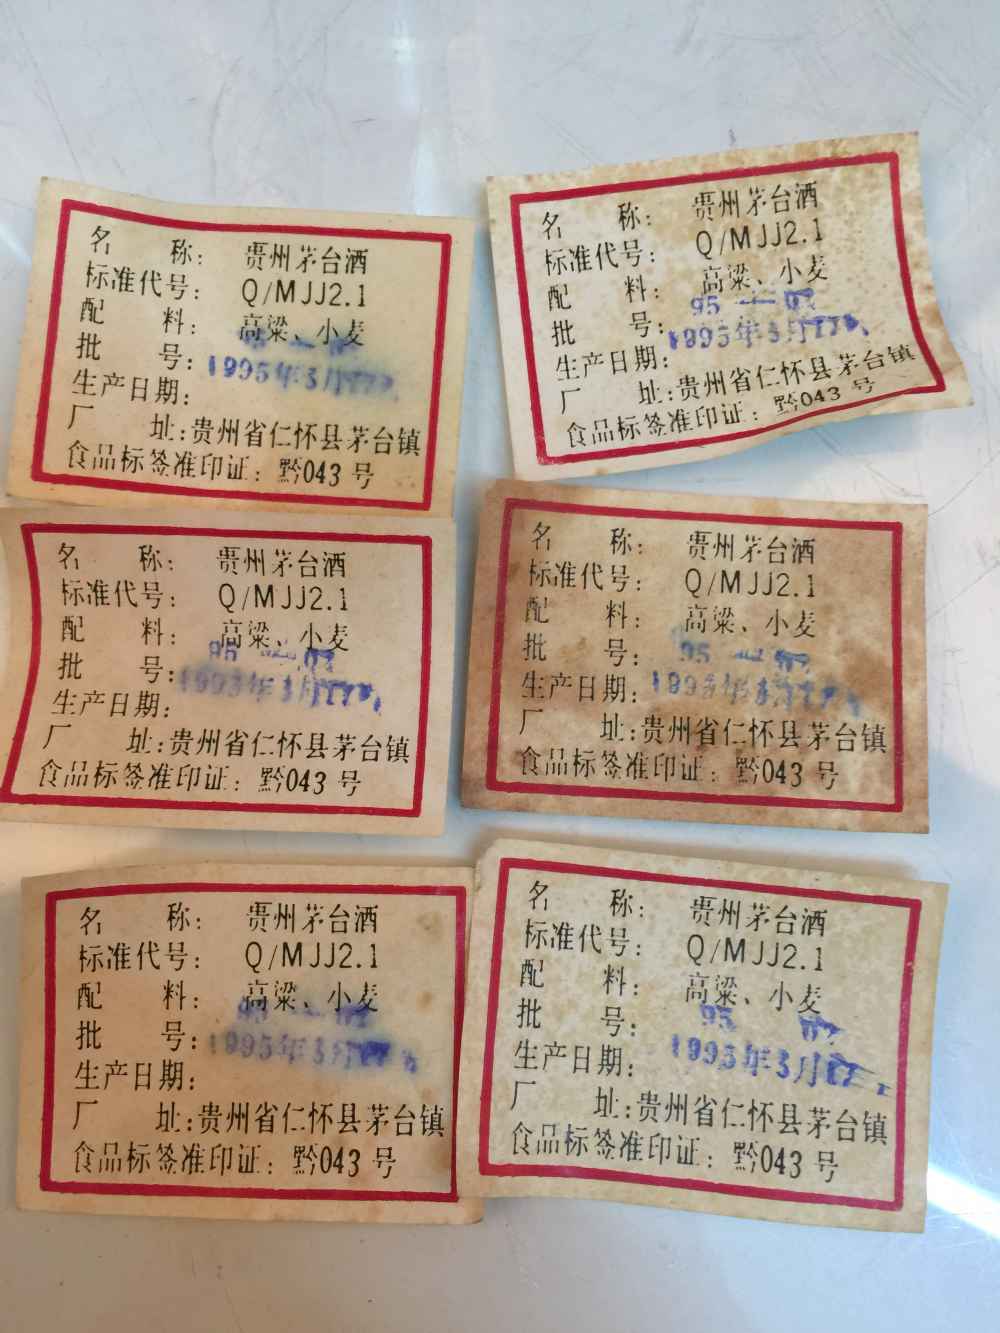 名 称: 贵州茅台酒
标准代号: Q/MJJ2.1
配 料: 高粱、小麦
批 号:
1995年3月
生产日期:
厂 址:贵州省仁怀县茅台镇
食品标签准印证: 黔043号
名 称: 贵州茅台酒
标准代号: Q/MJJ2.1
配 料: 高粱、小麦
95 — 02
批 号:
1995年3月17
生产日期:
厂 址:贵州省仁怀县茅台镇
食品标签准印证: 黔043号
名 称: 贵州茅台酒
标准代号: Q/MJJ2.1
配 料: 高粱、小麦
95 — 02
批 号:
1995年3月17
生产日期:
厂 址:贵州省仁怀县茅台镇
食品标签准印证: 黔043号
名 称: 贵州茅台酒
标准代号: Q/MJJ2.1
配 料: 高粱、小麦
95 — 02
批 号:
1995年3月17
生产日期:
厂 址:贵州省仁怀县茅台镇
食品标签准印证: 黔043号
名 称: 贵州茅台酒
标准代号: Q/MJJ2.1
配 料: 高粱、小麦
95 — 02
批 号:
1995年3月
生产日期:
厂 址:贵州省仁怀县茅台镇
食品标签准印证: 黔043号
名 称: 贵州茅台酒
标准代号: Q/MJJ2.1
配 料: 高粱、小麦
95 02
批 号:
1995年3月17
生产日期:
厂 址:贵州省仁怀县茅台镇
食品标签准印证: 黔043号